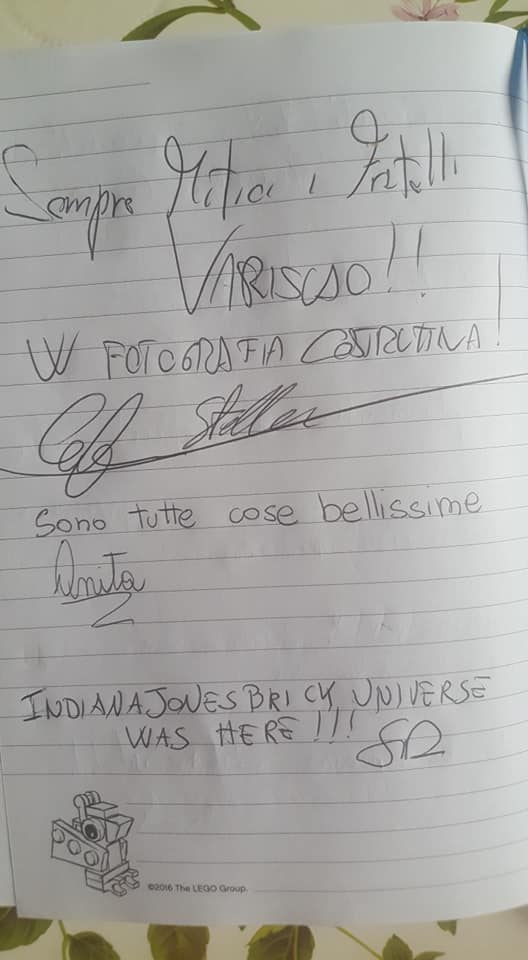 Sempre Mitici i Fratelli
VARISCO!!
W FOTOGRAFIA COSTRUTTIVA!
Sono tutte cose bellissime
Anita
INDIANAJONESBRICK UNIVERSE
WAS HERE!!!
©2016 The LEGO Group.